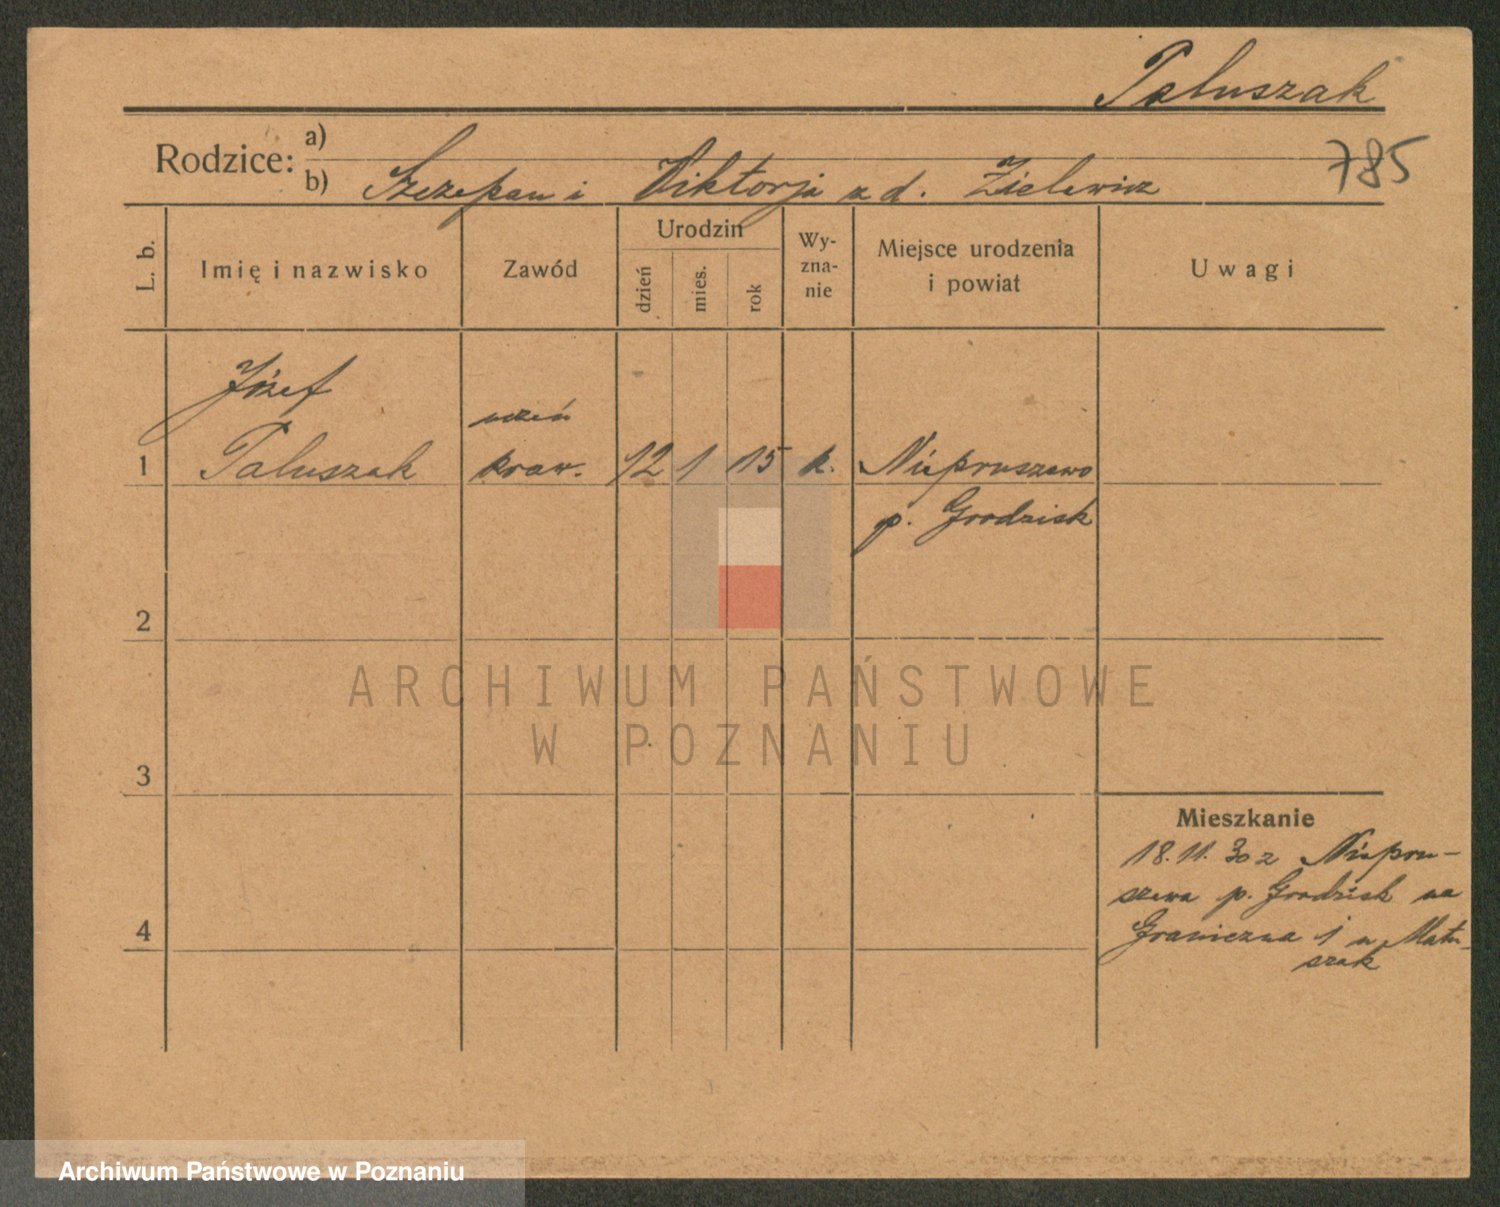 Paluszak
785
Rodzice: a)
b) Szczepan i Wiktorja z d. Zielewicz
L. b.
Imię i nazwisko
Zawód
Urodzin
dzień
mies.
rok
Wy-
zna-
nie
Miejsce urodzenia
i powiat
Uwagi
Józef
uczeń
1 Paluszak kraw. 12 1 15 k. Niepruszewo
p. Grodzisk
2
3
4
Mieszkanie
18.11.30 z Niepru-
szewa p. Grodzisk na
Graniczna 1 u Matu-
szak
ARCHIWUM PAŃSTWOWE
W POZNANIU
Archiwum Państwowe w Poznaniu